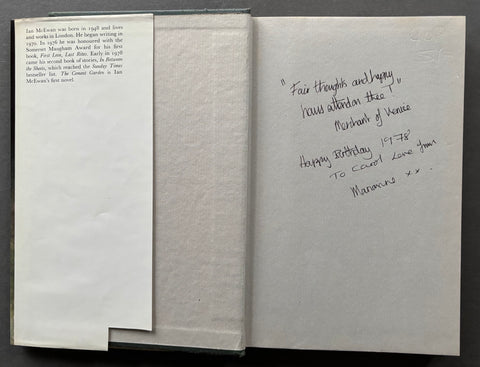 Ian McEwan was born in 1948 and lives
and works in London. He began writing in
1970. In 1976 he was honoured with the
Somerset Maugham Award for his first
book, First Love, Last Rites. Early in 1978
came his second book of stories, In Between
the Sheets, which reached the Sunday Times
bestseller list. The Cement Garden is Ian
McEwan's first novel.
"Fair thoughts and happy
hours attend on thee!"
Merchant of Venice
Happy Birthday 1978
To Carol Love from
xx.